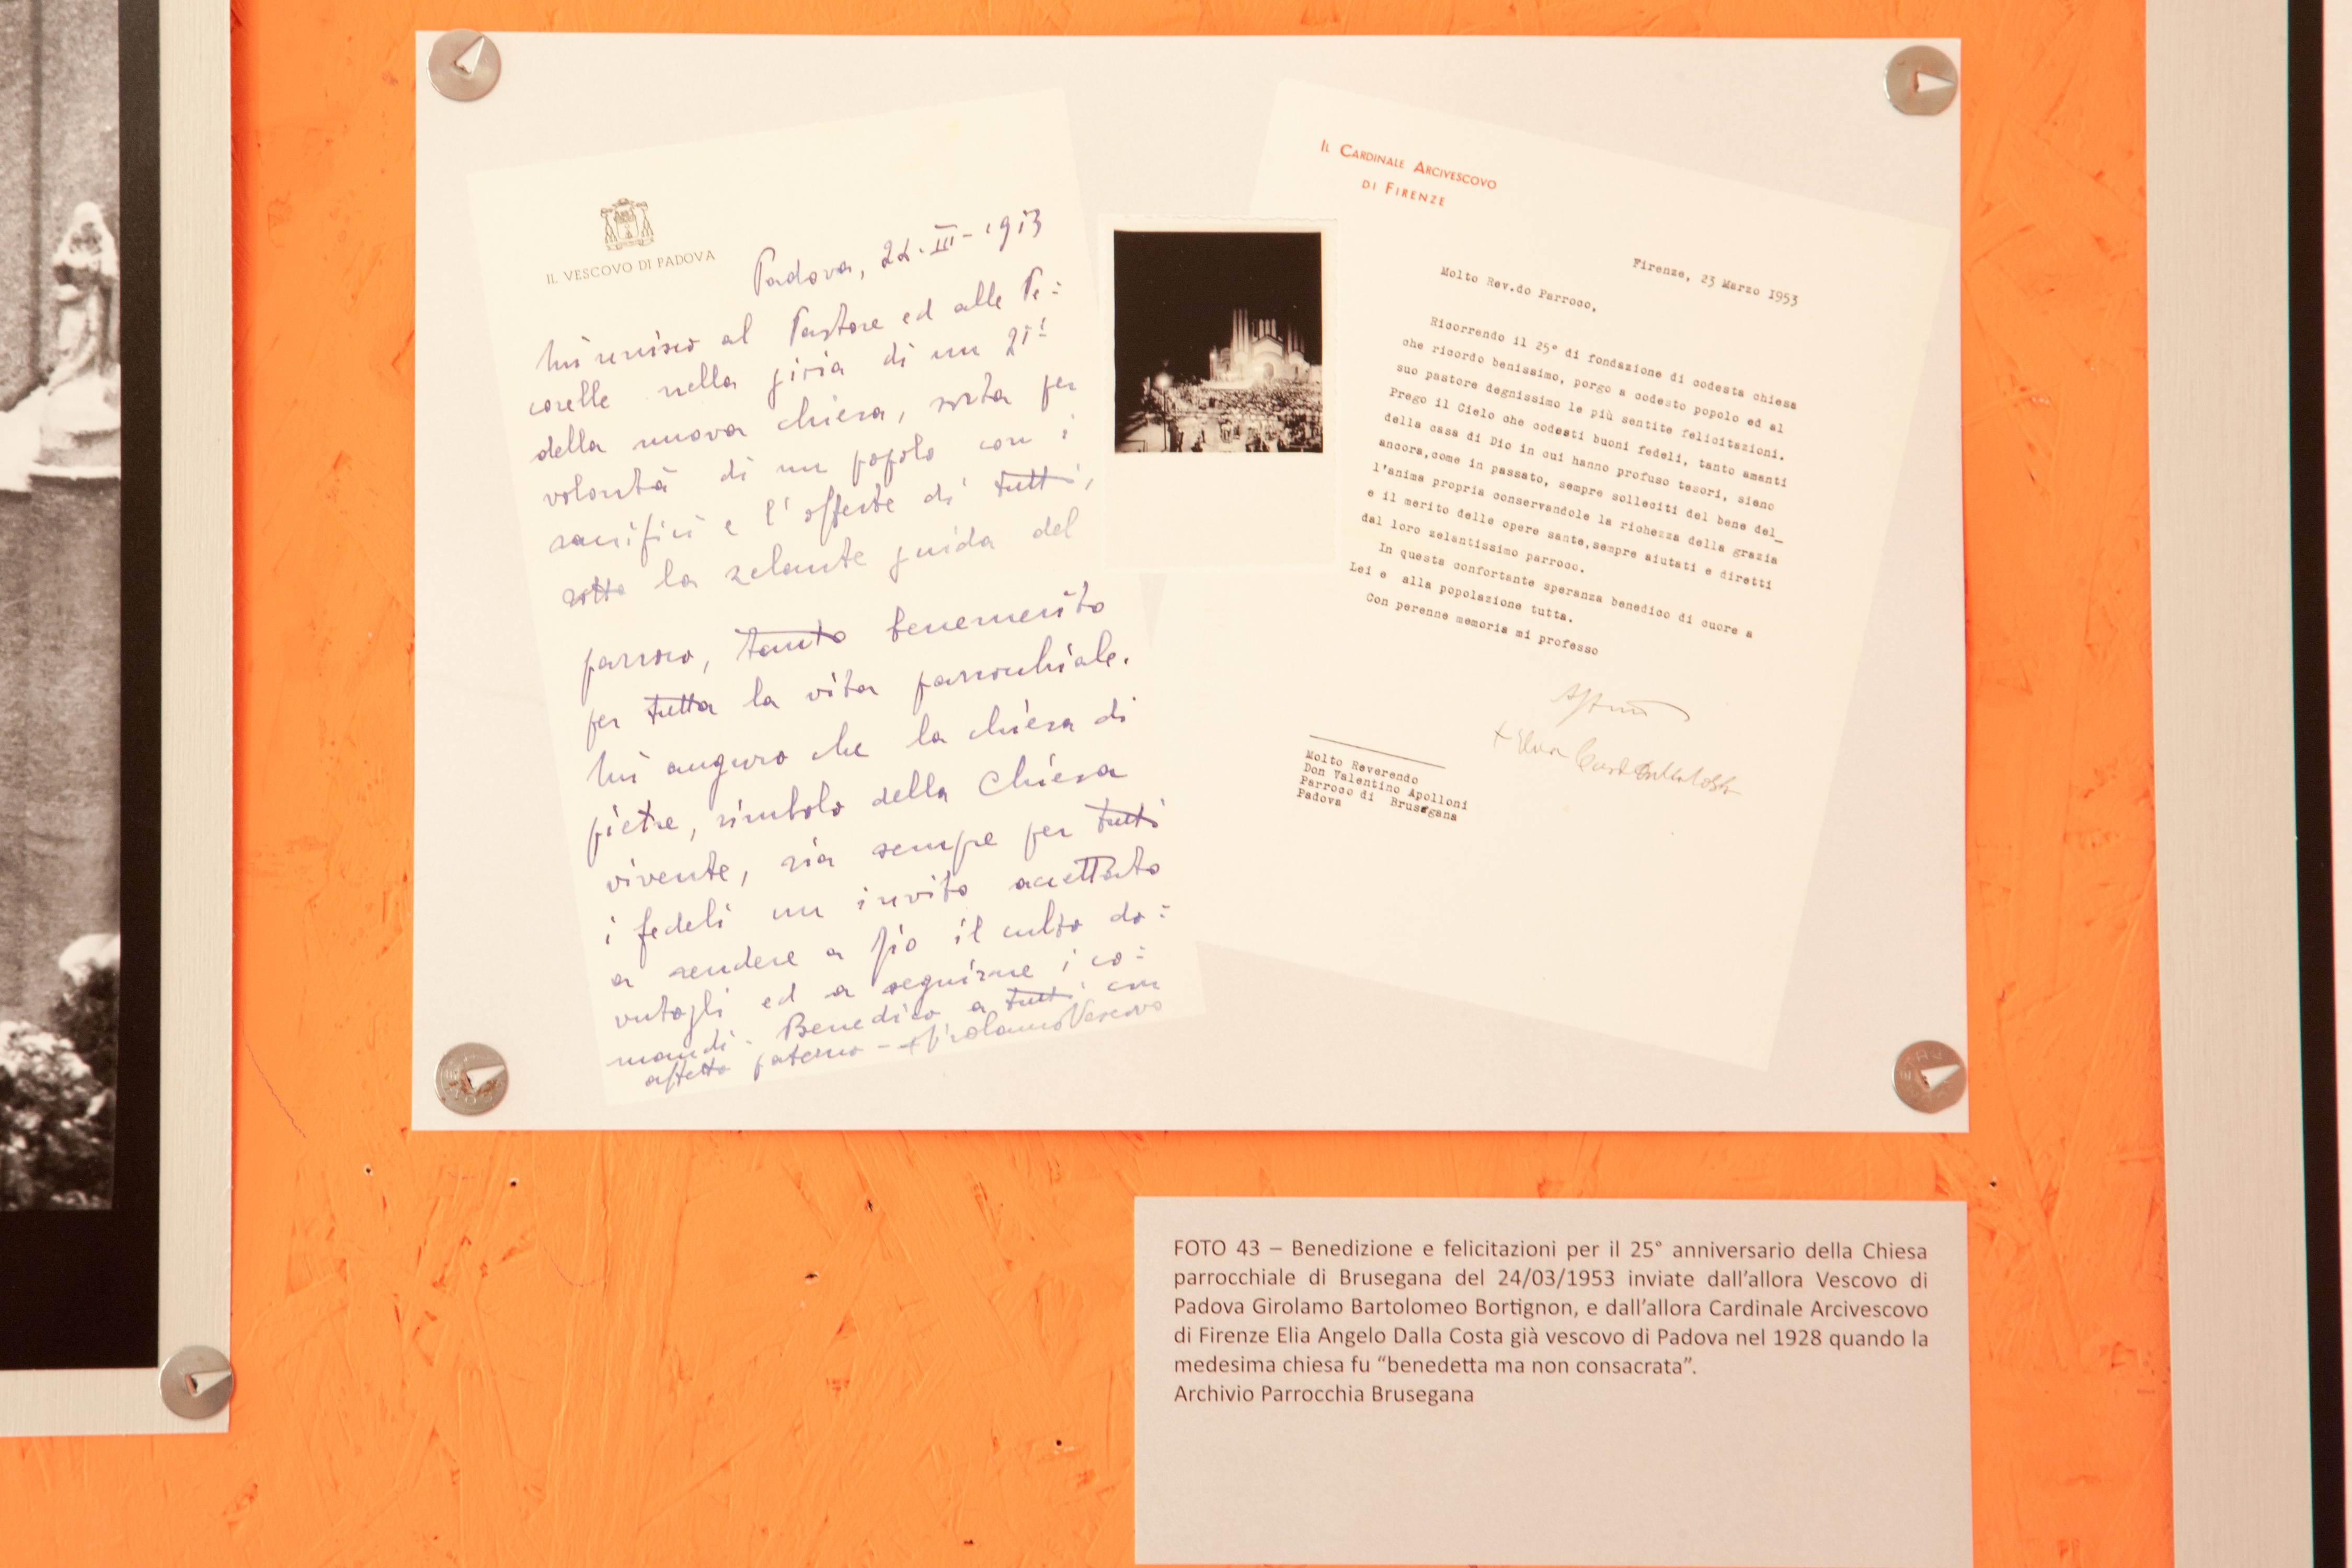 IL VESCOVO DI PADOVA
Padova, 22-III-1953
Mi unisco al Pastore ed alle Pe=
corelle nella gioia di un 25°
della nuova chiesa, sorta per
volontà di un popolo con i
sacrifici e l'offerte di tutti,
sotto la zelante guida del
parroco, tanto benemerito
per tutta la vita parrocchiale.
Mi auguro che la chiesa di
pietre, simbolo della Chiesa
vivente, sia sempre per tutti
i fedeli un invito accettato
a rendere a Dio il culto do=
vutogli ed a seguirne i co=
mandi. Benedico a tutti con
affetto paterno - + Girolamo Vescovo
IL CARDINALE ARCIVESCOVO
DI FIRENZE
Firenze, 23 Marzo 1953
Molto Rev.do Parroco,
Ricorrendo il 25° di fondazione di codesta chiesa
che ricordo benissimo, porgo a codesto popolo ed al
suo pastore degnissimo le più sentite felicitazioni.
Prego il Cielo che codesti buoni fedeli, tanto amanti
della casa di Dio in cui hanno profuso tesori, sieno
ancora,come in passato, sempre solleciti del bene del_
l'anima propria conservandole la richezza della grazia
e il merito delle opere sante,sempre aiutati e diretti
dal loro zelantissimo parroco.
In questa confortante speranza benedico di cuore a
Lei e alla popolazione tutta.
Con perenne memoria mi professo
Molto Reverendo
Don Valentino Apolloni
Parroco di Brusegana
Padova
FOTO 43 – Benedizione e felicitazioni per il 25° anniversario della Chiesa
parrocchiale di Brusegana del 24/03/1953 inviate dall'allora Vescovo di
Padova Girolamo Bartolomeo Bortignon, e dall'allora Cardinale Arcivescovo
di Firenze Elia Angelo Dalla Costa già vescovo di Padova nel 1928 quando la
medesima chiesa fu “benedetta ma non consacrata”.
Archivio Parrocchia Brusegana